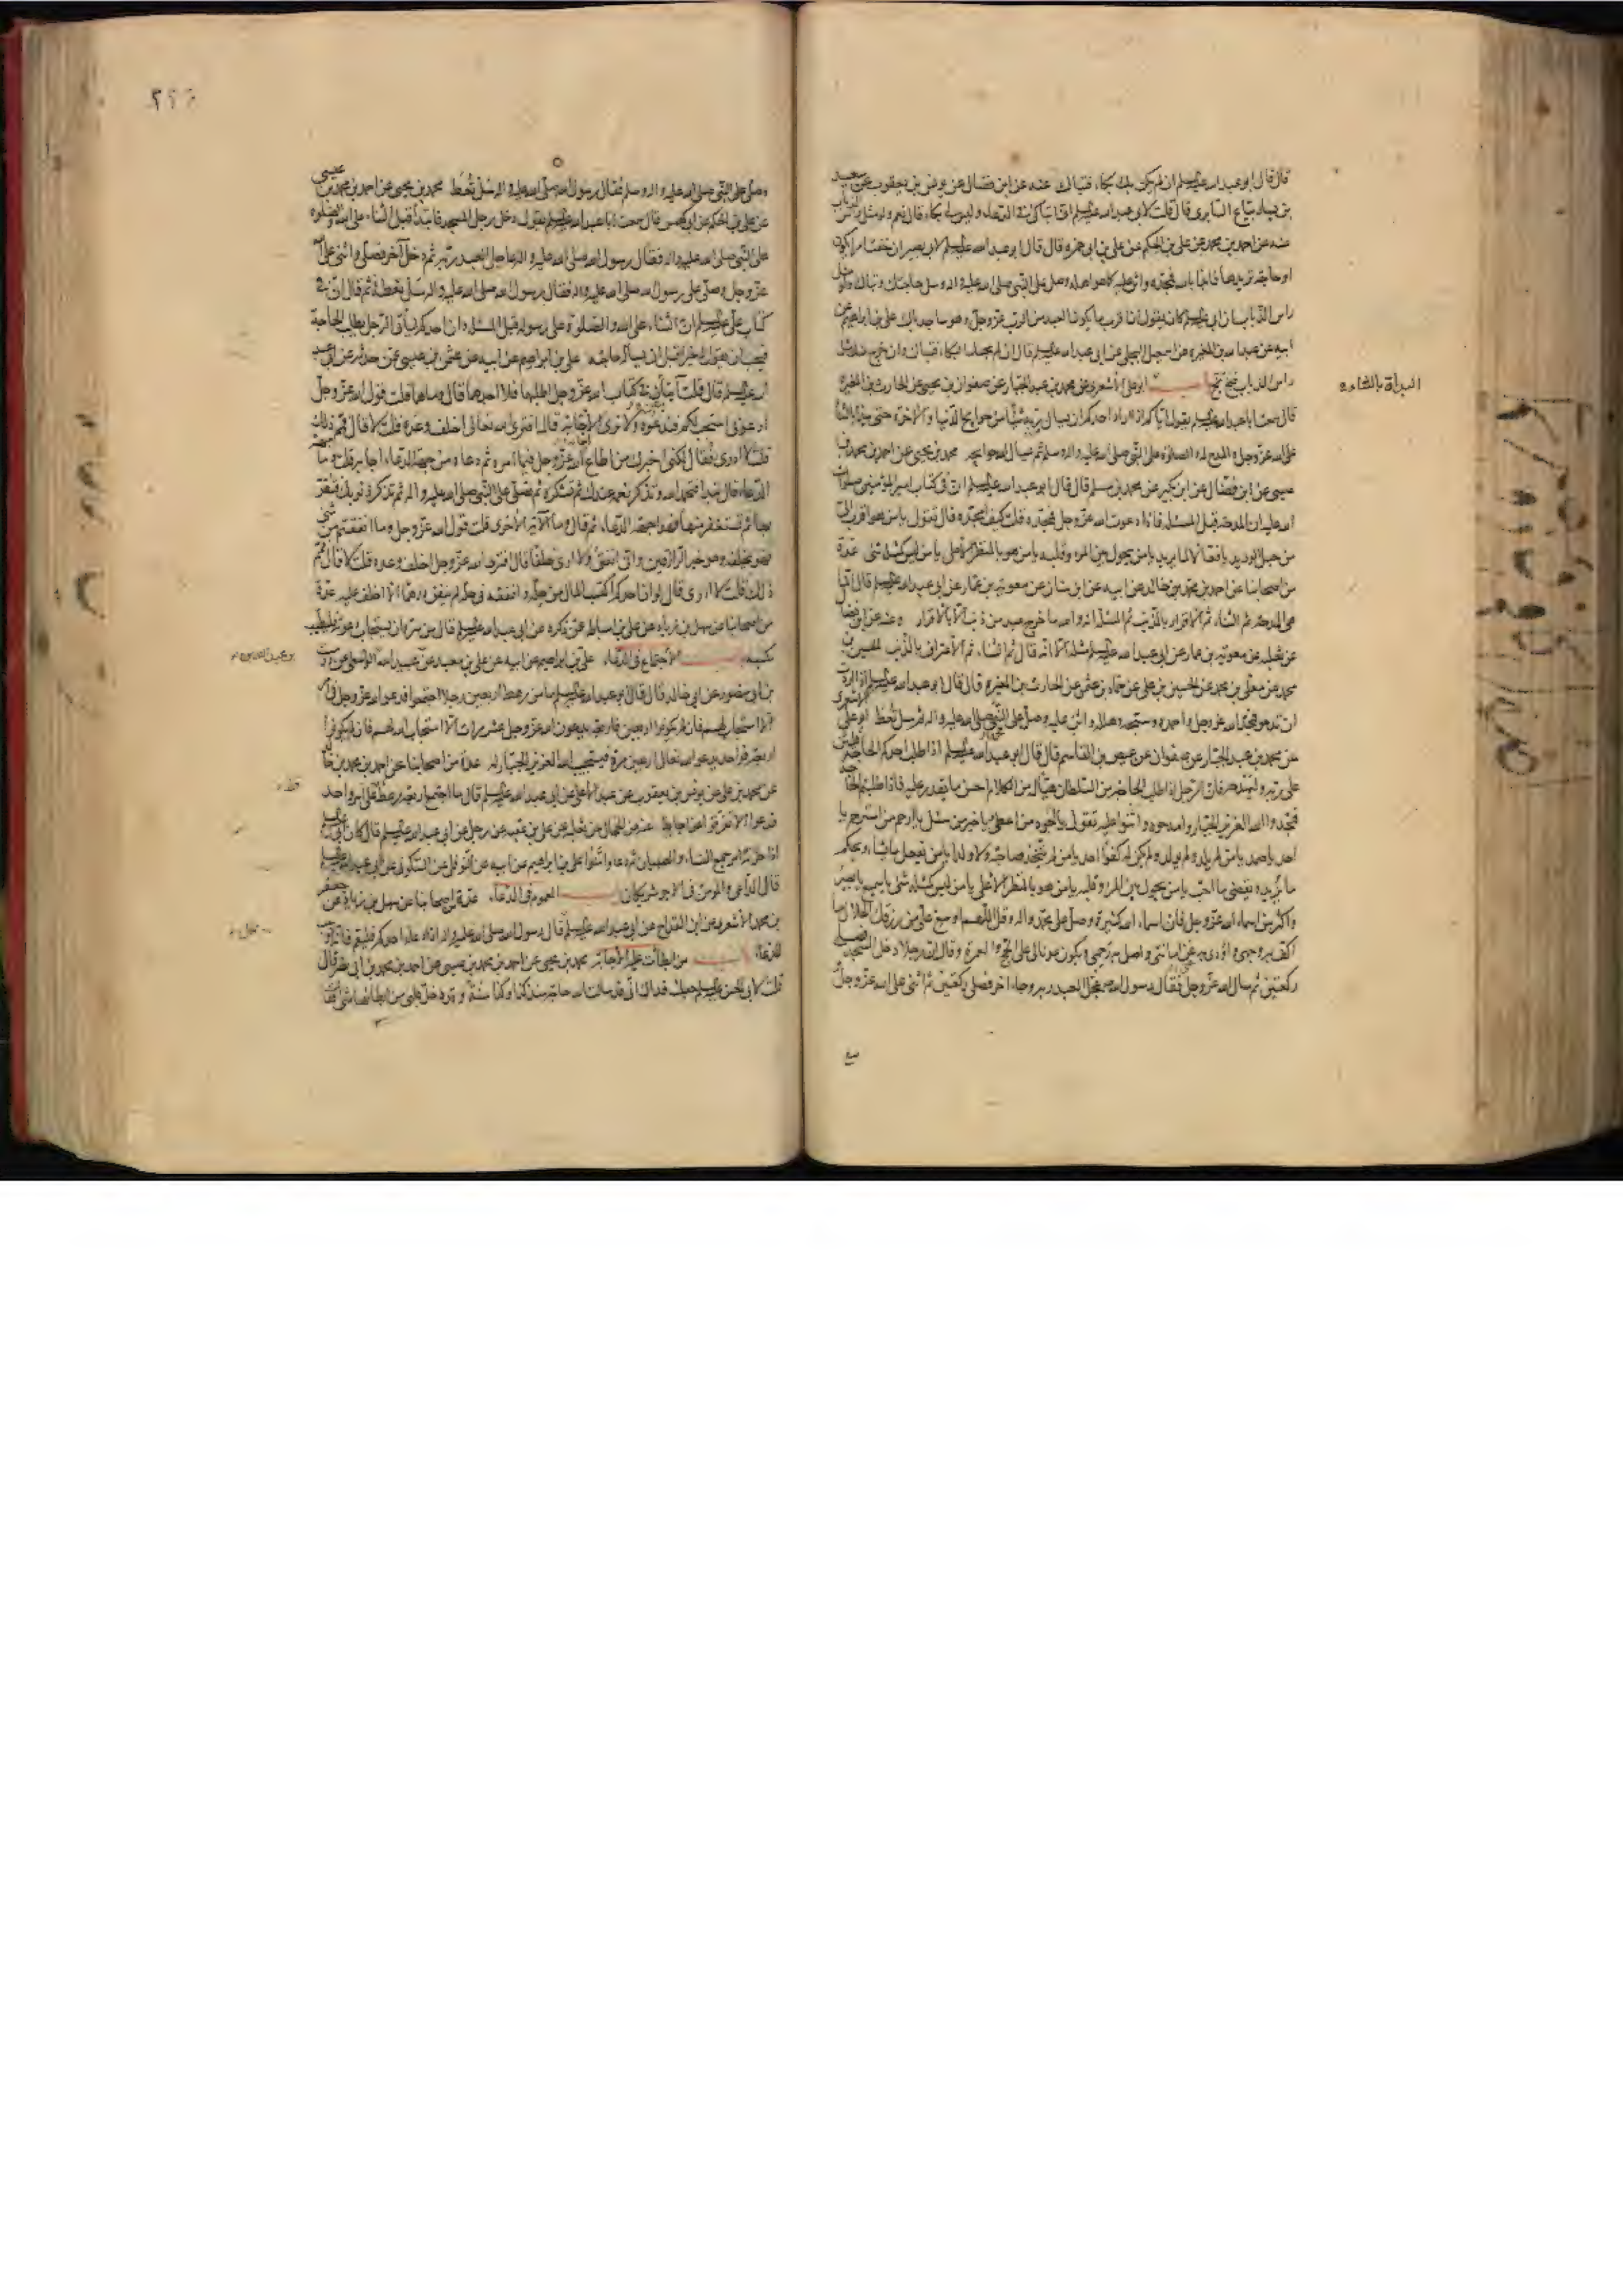 قال قال ابو عبد الله عليه السلم ان لم يكن بك بكاء فتباك عنه عن ابن فضال عن يونس بن يعقوب عن سعيد
بن يسار بياع السابرى قال قلت لابى عبد الله عليه السلم انى اتباكى فى الدعاء وليس لى بكاء قال نعم ولو مثل راس الذباب
عنه عن احمد بن محمد عن على بن الحكم عن على بن ابى حمزه قال قال ابو عبد الله عليه السلم لابى بصير ان خفت امرا يكون
او حاجة تريدها فابدا بالله فمجده واثن عليه كما هو اهله وصل على النبى صلى الله عليه واله وسل حاجتك وتباك ولو مثل
راس الذباب ان ابى عليه السلم كان يقول ان اقرب ما يكون العبد من الرب عز وجل وهو ساجد باك على بن ابراهيم عن
ابيه عن عبد الله بن المغيره عن اسمعيل البجلى عن ابى عبد الله عليه السلم قال ان لم يجئك البكاء فتباك وان خرج منك مثل
راس الذباب فبخ بخ باب ابو على الاشعرى عن محمد بن عبد الجبار عن صفوان بن يحيى عن الحارث بن المغيره
البداة بالثناء
قال سمعت ابا عبد الله عليه السلم يقول اياكم اذا اراد احدكم ان يسال ربه شيئا من حوايج الدنيا والاخرة حتى يبدا بالثناء
على الله عز وجل والمدح له والصلوة على النبى صلى الله عليه واله وسلم ثم يسال الله حوائجه محمد بن يحيى عن احمد بن محمد بن
عيسى عن ابن فضال عن ابن بكير عن محمد بن مسلم قال قال ابو عبد الله عليه السلم ان فى كتاب امير المؤمنين صلوات
الله عليه ان المدحة قبل المسئلة فاذا دعوت الله عز وجل فمجده قلت كيف امجده قال تقول يا من هو اقرب الى
من حبل الوريد يا فعالا لما يريد يا من يحول بين المرء وقلبه يا من هو بالمنظر الاعلى يا من ليس كمثله شئ عدة
من اصحابنا عن احمد بن محمد بن خالد عن ابيه عن ابن سنان عن معوية بن عمار عن ابى عبد الله عليه السلم قال انما
هى المدحة ثم الثناء ثم الاقرار بالذنب ثم المسئلة انه والله ما خرج عبد من ذنب الا بالاقرار وعنه عن ابن فضال
عن ثعلبه عن معوية بن عمار عن ابى عبد الله عليه السلم مثله الا انه قال ثم الثناء ثم الاعتراف بالذنب الحسين بن
محمد عن معلى بن محمد عن الحسين بن على عن حماد بن عثمن عن الحارث بن المغيره قال قال ابو عبد الله عليه السلم اذا اردت
ان تدعو فمجد الله عز وجل واحمده وسبحه وهلله واثن عليه وصل على النبى صلى الله عليه واله ثم سل تعط ابو على الاشعرى
عن محمد بن عبد الجبار عن صفوان عن عيص بن القاسم قال قال ابو عبد الله عليه السلم اذا طلب احدكم الحاجة فليثن
على ربه وليمدحه فان الرجل اذا طلب الحاجة من السلطان هيا له من الكلام احسن ما يقدر عليه فاذا طلبتم الحاجة
فمجدوا الله العزيز الجبار وامدحوه واثنوا عليه تقول يا اجود من اعطى ويا خير من سئل يا ارحم من استرحم يا
احد يا صمد يا من لم يلد ولم يولد ولم يكن له كفوا احد يا من لم يتخذ صاحبة ولا ولدا يا من يفعل ما يشاء ويحكم
ما يريد ويقضى ما احب يا من يحول بين المرء وقلبه يا من هو بالمنظر الاعلى يا من ليس كمثله شئ يا سميع يا بصير
واكثر من اسماء الله عز وجل فان اسماء الله كثيرة وصل على محمد واله وقل اللهم اوسع على من رزقك الحلال ما
اكف به وجهى واؤدى به عن امانتى واصل به رحمى ويكون عونا لى على الحج والعمرة وقال ان رجلا دخل المسجد فصلى
ركعتين ثم سال الله عز وجل فقال رسول الله ص عجل العبد ربه وجاء اخر فصلى ركعتين ثم اثنى على الله عز وجل
وصلى على النبى صلى الله عليه واله وسلم فقال رسول الله صلى الله عليه واله سل تعط محمد بن يحيى عن احمد بن محمد بن عيسى
عن على بن الحكم عن ابى كهمس قال سمعت ابا عبد الله عليه السلم يقول دخل رجل المسجد فابتدا قبل الثناء على الله والصلوة
على النبى صلى الله عليه واله فقال رسول الله صلى الله عليه واله عاجل العبد ربه ثم دخل آخر فصلى واثنى على الله
عز وجل وصلى على رسول الله صلى الله عليه واله فقال رسول الله صلى الله عليه واله سل تعطه ثم قال ان فى
كتاب على عليه السلم ان الثناء على الله والصلوة على رسوله قبل المسئلة وان احدكم لياتى الرجل يطلب الحاجة
فيحب ان يقول له خيرا قبل ان يساله حاجته على بن ابراهيم عن ابيه عن عثمن بن عيسى عمن حدثه عن ابى عبد
الله عليه السلم قال قلت آيتان فى كتاب الله عز وجل اطلبهما فلا اجدهما قال وما هما قلت قول الله عز وجل
ادعونى استجب لكم فندعوه ولا نرى الاجابة قال افترى الله تعالى اخلف وعده قلت لا قال فمم ذلك
قلت لا ادرى فقال لكنى اخبرك من اطاع الله عز وجل فيما امره ثم دعاه من جهة الدعاء اجابه قلت وما جهة
الدعاء قال تبدا فتحمد الله وتذكر نعمه عندك ثم تشكره ثم تصلى على النبى صلى الله عليه واله ثم تذكر ذنوبك فتقر
بها ثم تستغفر منها فهذا جهة الدعاء ثم قال وما الآية الاخرى قلت قول الله عز وجل وما انفقتم من شئ
فهو يخلفه وهو خير الرازقين وانى انفق ولا ارى خلفا قال فترى الله عز وجل اخلف وعده قلت لا قال فمم
ذلك قلت لا ادرى قال لو ان احدكم اكتسب المال من حله وانفقه فى حله لم ينفق درهما الا اخلف عليه عدة
من اصحابنا عن سهل بن زياد عن على بن اسباط عمن ذكره عن ابى عبد الله عليه السلم قال من سره ان يستجاب دعوته فليطيب
مكسبه باب الاجتماع فى الدعاء على بن ابراهيم عن ابيه عن على بن معبد عن عبيد الله الواسطى عن درست
بن ابى منصور عن ابى خالد قال قال ابو عبد الله عليه السلم ما من رهط اربعين رجلا اجتمعوا فدعوا الله عز وجل فى امر
الا استجاب لهم فان لم يكونوا اربعين فاربعة يدعون الله عز وجل عشر مرات الا استجاب الله لهم فان لم يكونوا
اربعة فواحد يدعو الله تعالى اربعين مرة فيستجيب الله العزيز الجبار له عدة من اصحابنا عن احمد بن محمد بن خالد
عن محمد بن على عن يونس بن يعقوب عن عبد الاعلى عن ابى عبد الله عليه السلم قال ما اجتمع اربعة رهط قط على امر واحد
فدعوا الا تفرقوا عن اجابة عنه عن الحجال عن ثعلبه عن على بن عقبه عن رجل عن ابى عبد الله عليه السلم قال كان ابى عليه السلم
اذا حزنه امر جمع النساء والصبيان ثم دعا وامنوا على بن ابراهيم عن ابيه عن النوفلى عن السكونى عن ابى عبد الله عليه السلم
قال الداعى والمؤمن فى الاجر شريكان باب العموم فى الدعاء عدة من اصحابنا عن سهل بن زياد عن جعفر
بن محمد الاشعرى عن ابن القداح عن ابى عبد الله عليه السلم قال قال رسول الله صلى الله عليه واله اذا دعا احدكم فليعم فانه اوجب
للدعاء باب من ابطات عليه الاجابة محمد بن يحيى عن احمد بن محمد بن عيسى عن احمد بن محمد بن ابى نصر قال
قلت لابى الحسن عليه السلم جعلت فداك انى قد سالت الله حاجة منذ كذا وكذا سنة وقد دخل قلبى من ابطائها شئ فقال